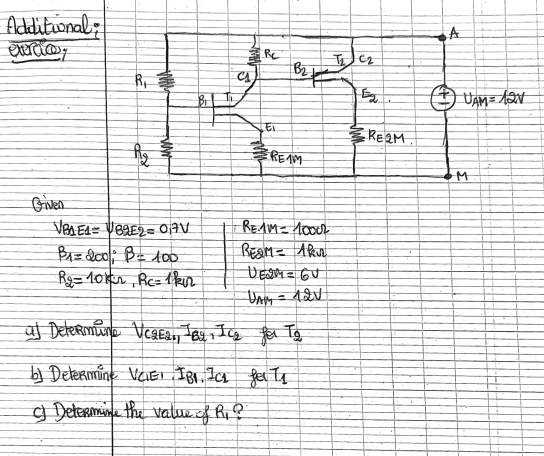 Additional;
exercice;
A
RC
T2
C2
R1
C1
B2
B1
T1
E2
UAM=12V
E1
RE2M
R2
RE1M
M
Given
VB1E1= VB2E2= 0,7V
β1=200; β= 100
R2=10KΩ, RC= 1kΩ
RE1M= 100Ω
RE2M= 1kΩ
UE2M= 6V
UAM= 12V
a) Determine VC2E2, IB2, IC2 for T2
b) Determine VC1E1, IB1, IC1 for T1
c) Determine the value of R1?